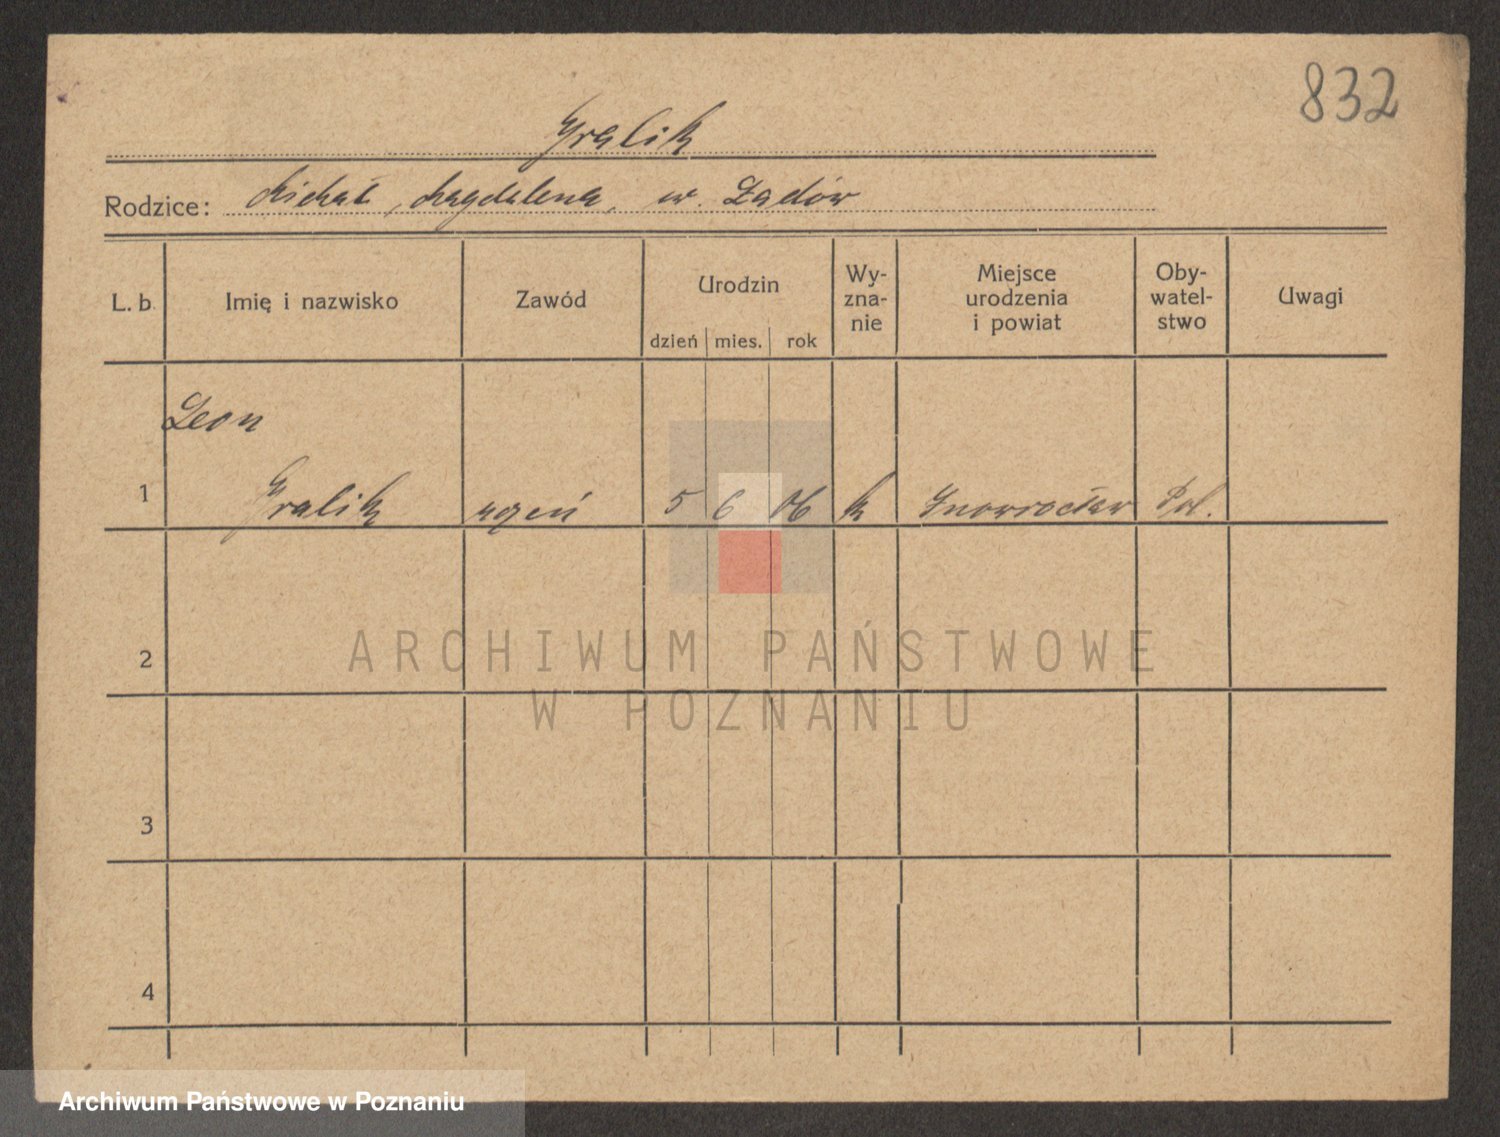 832
Gralik
Rodzice: Michał, Magdalena, w. Zadów
L. b. Imię i nazwisko Zawód Urodzin Wy-zna-nie Miejsce urodzenia i powiat Oby-watel-stwo Uwagi
dzień mies. rok
Leon
1 Gralik uczeń 5 6 06 k Inowrocław Pol.
2
ARCHIWUM PAŃSTWOWE
W POZNANIU
3
4
Archiwum Państwowe w Poznaniu